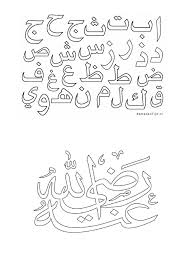 ا ب ت ث ج ح خ
د ذ ر ز س ش ص
ض ط ظ ع غ ف
ق ك ل م ن ه و ي
رضي الله
عنه